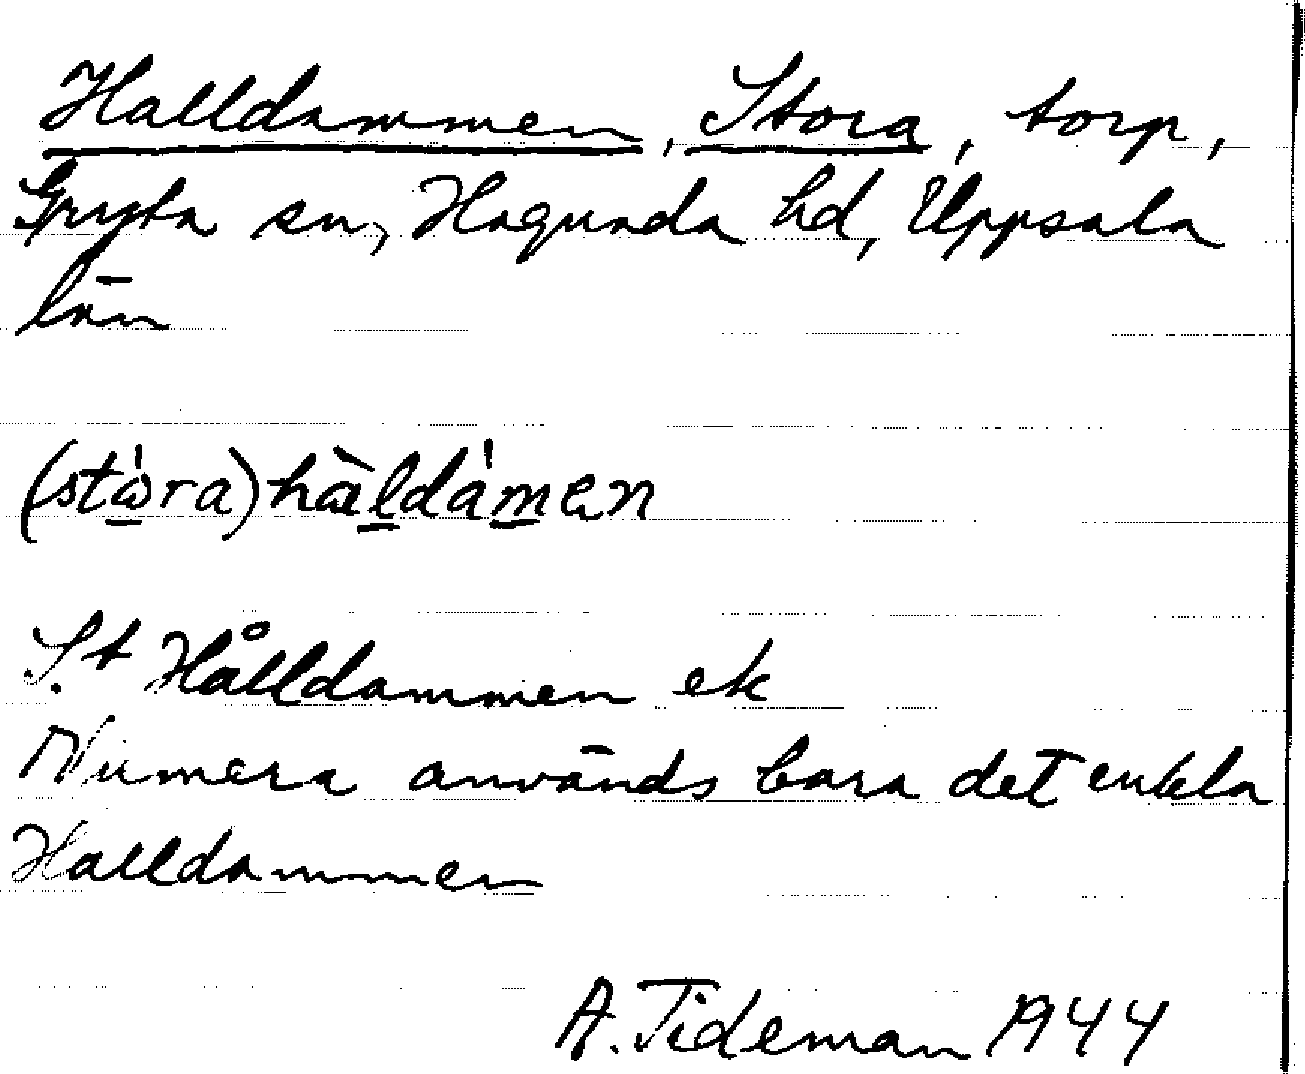 Halldammen, Stora, torp,
Gryta sn, Hagunda hd, Uppsala
län
(stὼra) hàldámen
St Hålldammen ek
Numera används bara det enkla
Halldammen
A. Tideman 1944